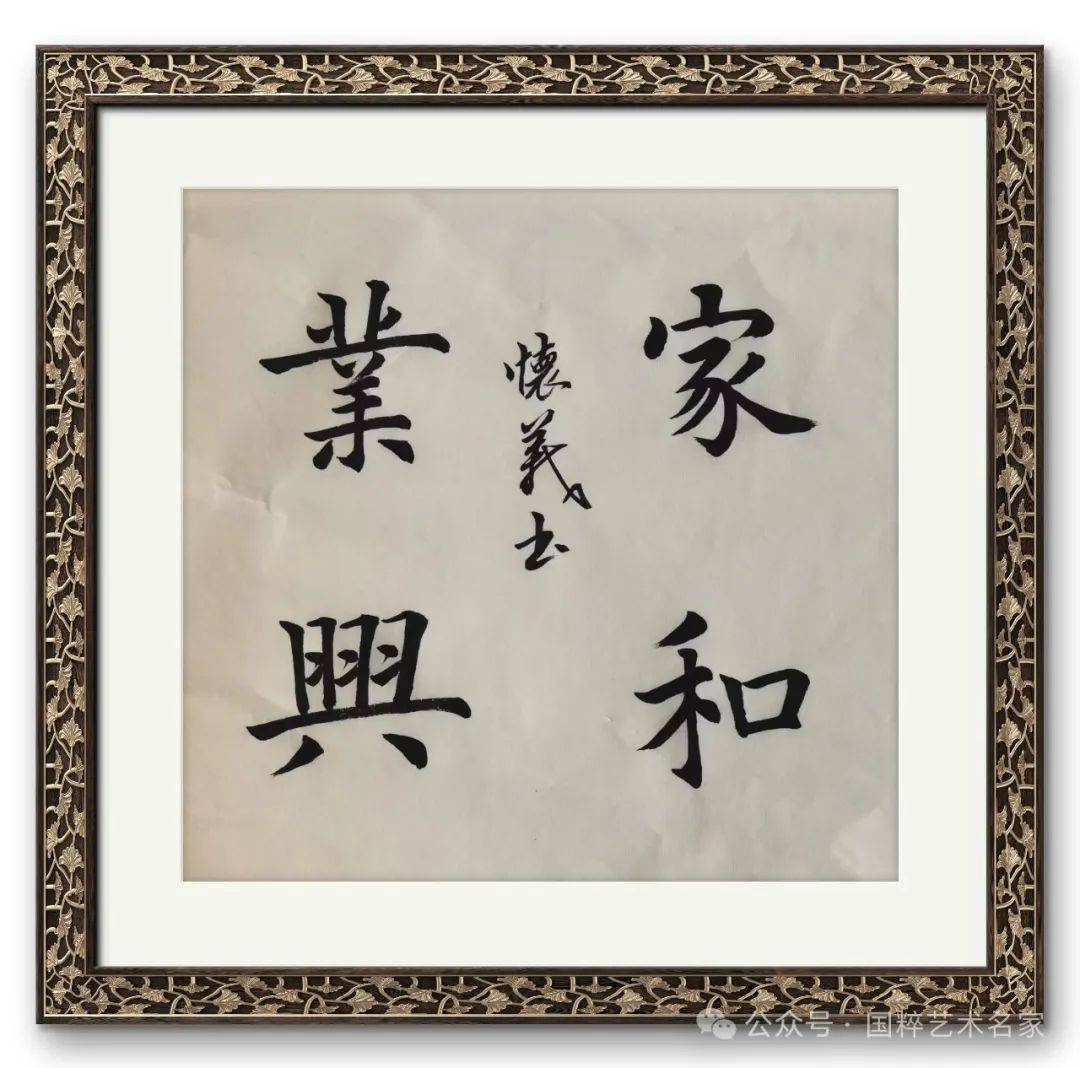 家和
業興
懷義书
公众号·国粹艺术名家